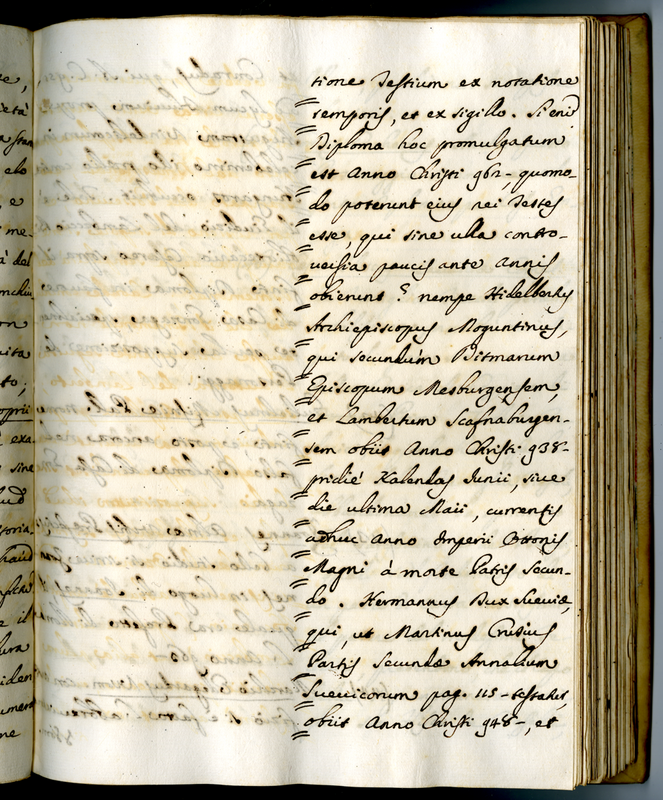 tione Testium ex notatione
temporis, et ex sigillo. Si enim
Diploma hoc promulgatum
est Anno Christi 962-, quomo-
do poterunt eius rei Testes
esse, qui sine ulla contro-
versia paucis ante Annis
obierunt? nempe Hidelbertus
Archiepiscopus Moguntinus,
qui secundum Ditmarum
Episcopum Mesburgensem,
et Lambertum Scafnaburgen-
sem obiit Anno Christi 938-
pridie Kalendas Iunii, sive
die ultima Maii, currentis
adhuc Anno Imperii Ottonis
Magni à morte Patris Secun-
do. Hermannus Dux Sueviæ,
qui, ut Martinus Crusius
Partis Secundæ Annalium
Suevicorum pag. 115- testatur,
obiit Anno Christi 948-, et